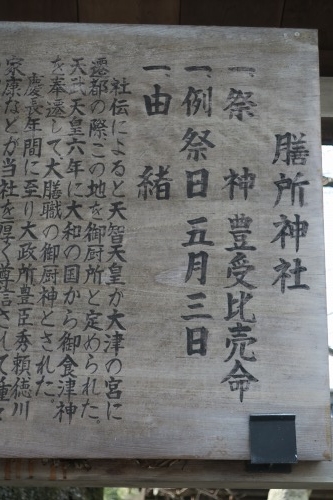 膳所神社
一、祭神 豊受比売命
一、例祭日 五月三日
一、由緒
社伝によると天智天皇が大津の宮に
遷都の際この地を御厨所と定められた。
天武天皇六年に大和の国から御食津神
を奉遷して、大膳職の御厨神とされた。
慶長年間に至り大政所豊臣秀頼徳川
家康などが当社を厚く尊信されて種々